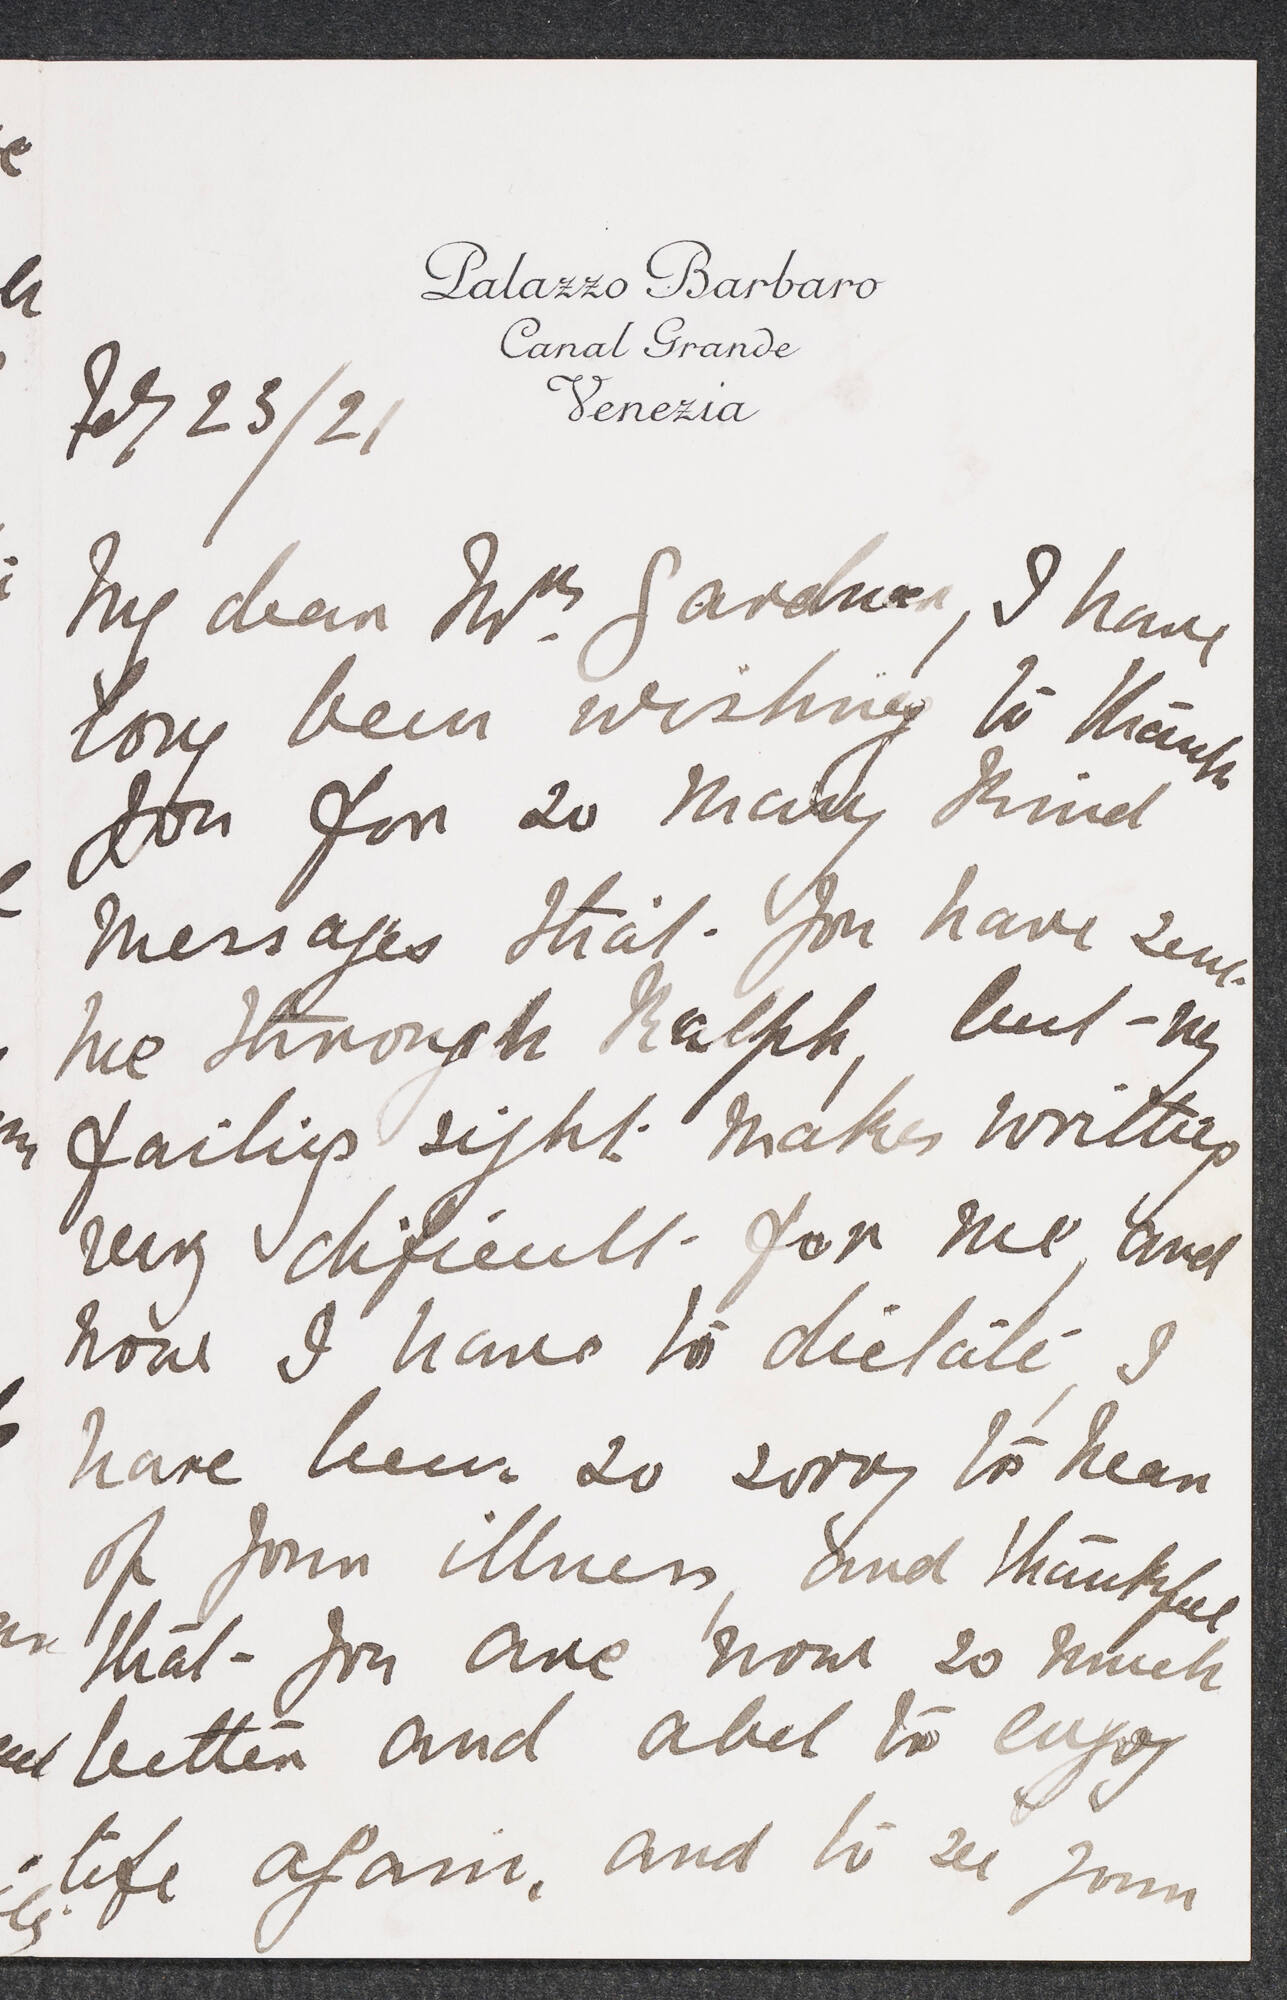 Palazzo Barbaro
Canal Grande
Venezia
Feb 23/21
My dear Mrs. Gardner, I have
long been wishing to thank
you for so many kind
messages that you have sent
me through Ralph, but my
failing sight makes writing
very difficult for me, and
now I have to dictate, I
have been so sorry to hear
of your illness, and thankful
that you are now so much
better and abel to enjoy
life again, and to see your